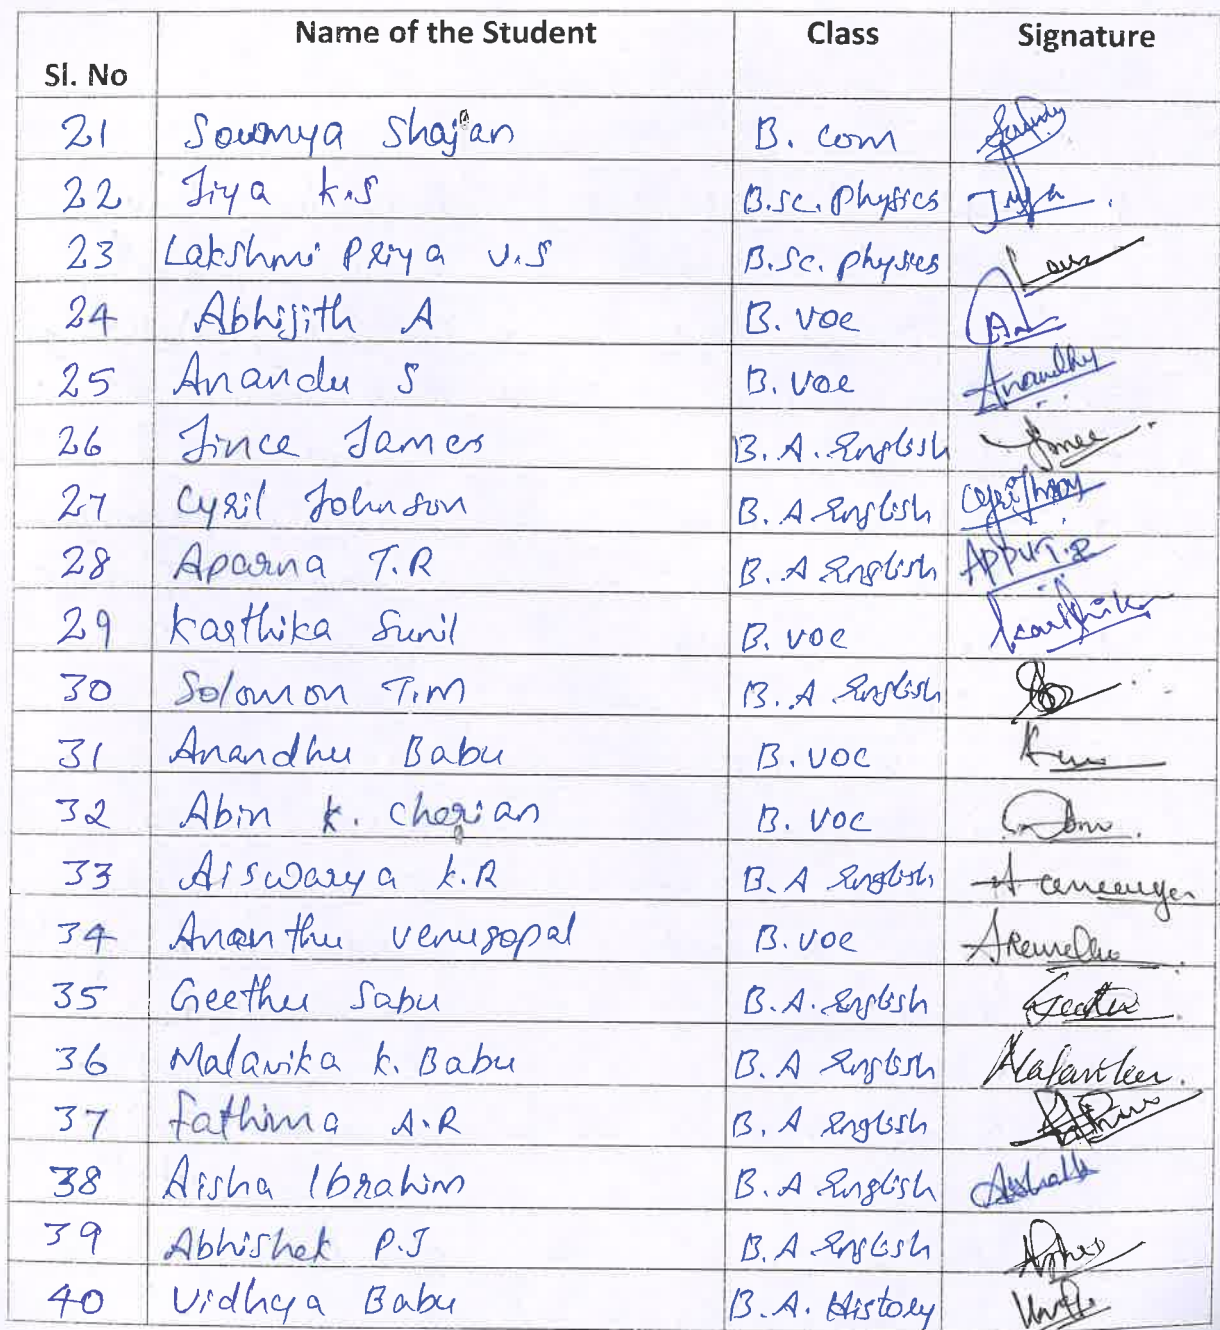 Name of the Student Class Signature
Sl. No
21 Soumya Shajan B. com
22 Jiya K.S B.Sc. Physics Jiya
23 Lakshmi Priya V.S B.Sc. Physics
24 Abhijith A B. VOC
25 Anandu S B. Voc Anandhu
26 Jince James B. A. English Jince
27 Cyril Johnson B. A English
28 Aparna T.R B. A English APPUT.R
29 Karthika Sunil B. VOC Karthika
30 Solomon T.M B. A English
31 Anandhu Babu B. VOC
32 Abin K. Cherian B. VOC
33 Aiswarya K.R B. A English
34 Ananthu Venugopal B. VOC
35 Geethu Sabu B. A. English Geethu
36 Malavika K. Babu B. A English Malavika
37 Fathima A.R B. A English
38 Aisha Ibrahim B. A English
39 Abhishek P.J B. A English
40 Vidhya Babu B. A. History